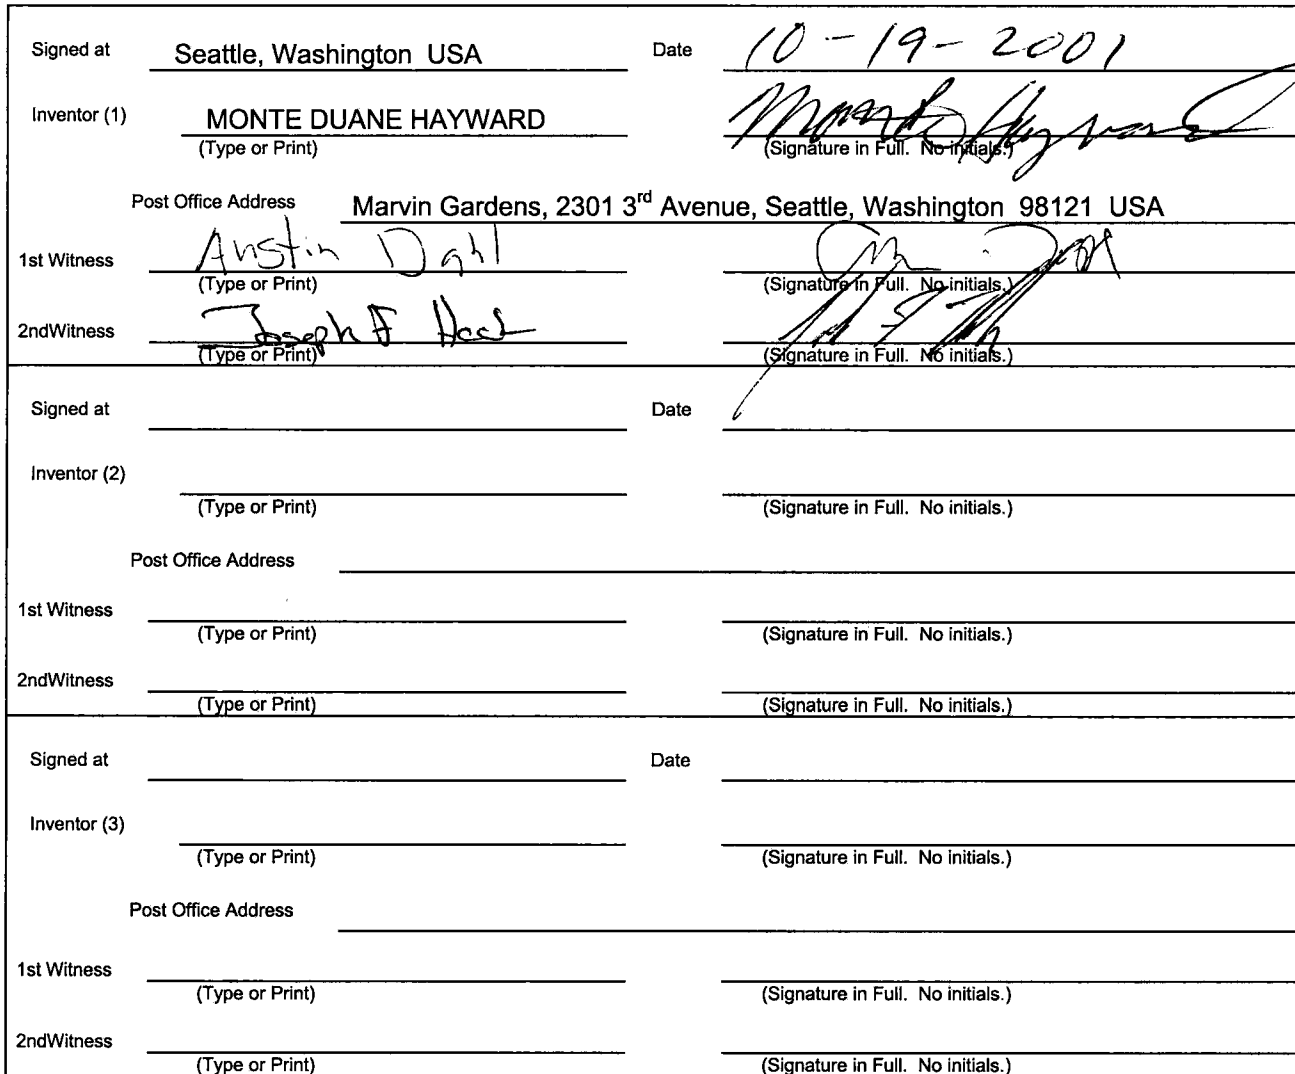 Signed at Seattle, Washington USA Date 10-19-2001
Inventor (1) MONTE DUANE HAYWARD
(Type or Print) (Signature in Full. No initials.)
Post Office Address Marvin Gardens, 2301 3rd Avenue, Seattle, Washington 98121 USA
1st Witness Austin Dahl
(Type or Print) (Signature in Full. No initials.)
2ndWitness Joseph F
(Type or Print) (Signature in Full. No initials.)
Signed at Date
Inventor (2)
(Type or Print) (Signature in Full. No initials.)
Post Office Address
1st Witness
(Type or Print) (Signature in Full. No initials.)
2ndWitness
(Type or Print) (Signature in Full. No initials.)
Signed at Date
Inventor (3)
(Type or Print) (Signature in Full. No initials.)
Post Office Address
1st Witness
(Type or Print) (Signature in Full. No initials.)
2ndWitness
(Type or Print) (Signature in Full. No initials.)